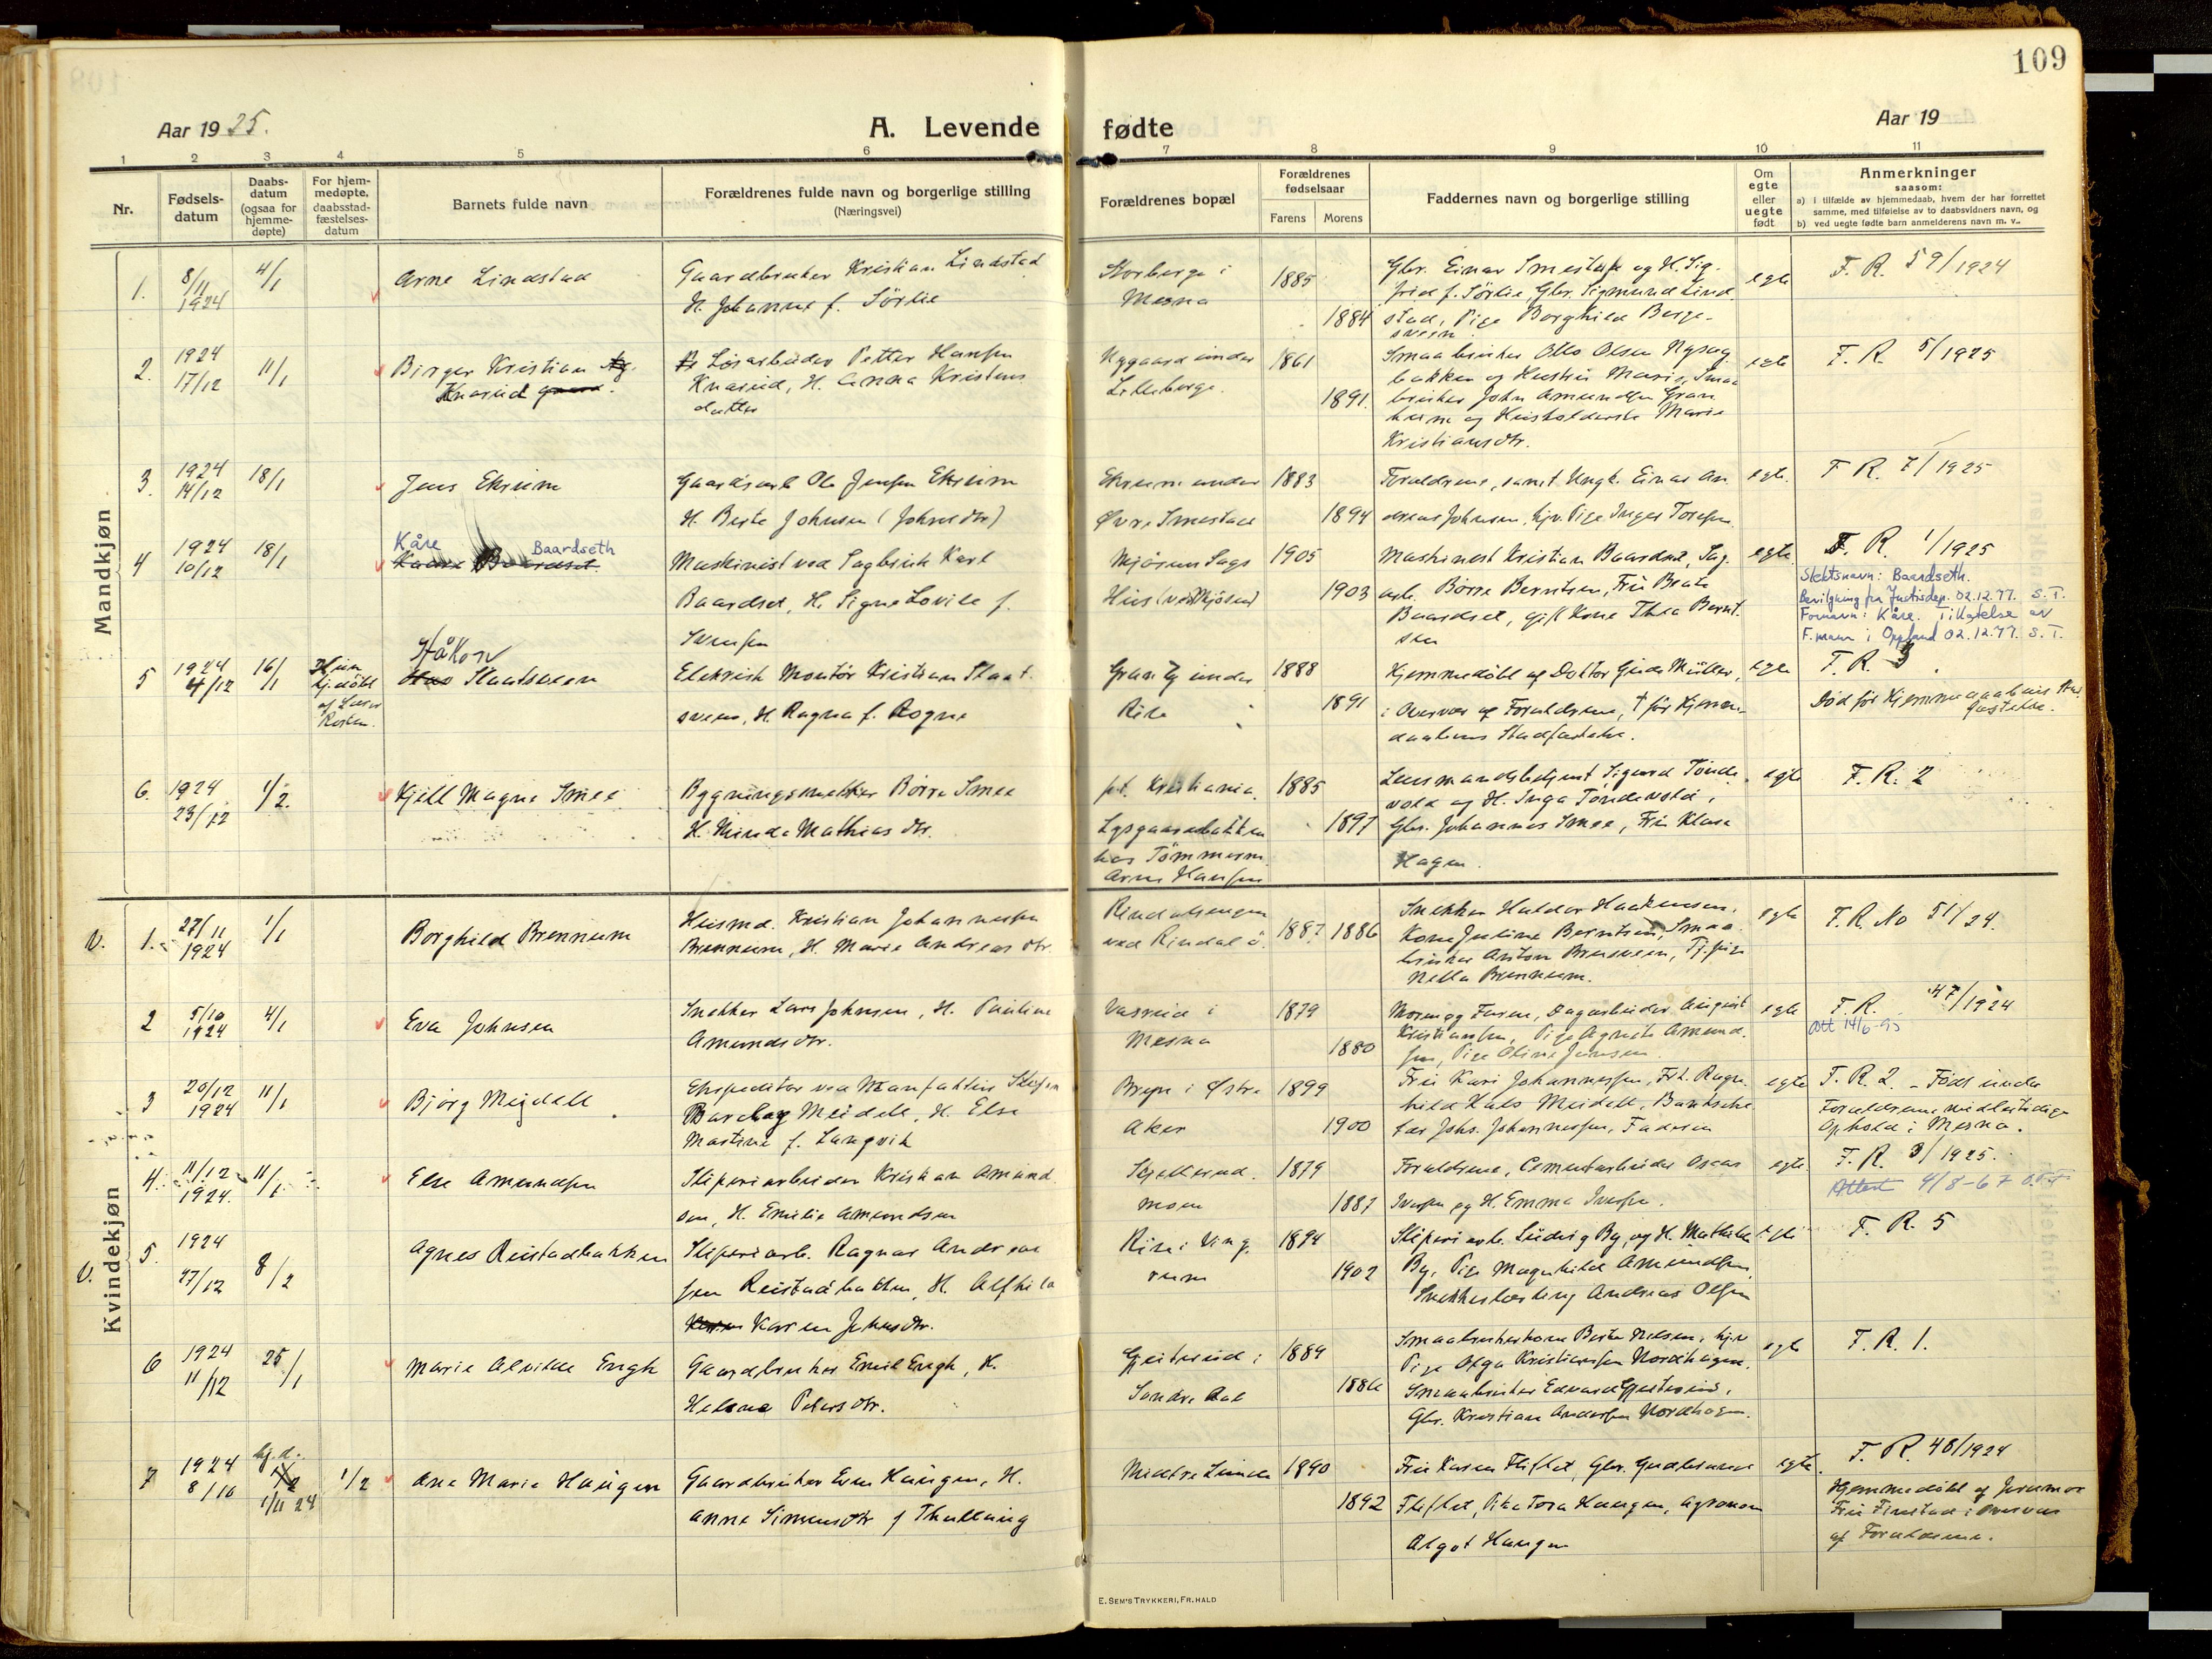 109
Aar 1925.
A. Levende fødte
Aar 19
1 2 3 4 5 6 7 8 9 10 11
Nr.
Fødsels-
datum
Daabs-
datum
(ogsaa for
hjemme-
døpte)
For hjem-
medøpte,
daabsstad-
fæstelses-
datum
Barnets fulde navn
Forældrenes fulde navn og borgerlige stilling
(Næringsvei)
Forældrenes bopæl
Forældrenes
fødselsaar
Farens Morens
Faddernes navn og borgerlige stilling
Om
egte
eller
uegte
født
Anmerkninger
saasom:
a) i tilfælde av hjemmedaab, hvem der har forrettet
samme, med tilføielse av to daabsvidners navn, og
b) ved uegte fødte barn anmelderens navn m. v..
Mandkjøn
1. 8/11 1924 4/1 Arne Lindstad
Gaardbruker Kristian Lindstad
H. Johanne f. Sørlie
Storberge i
Mesna
1885 1884
Gbr. Einar Smestad og H. Sig-
frid f. Sørlie, Gbr. Sigmund Lind-
stad, Pige Borghild Berge-
sveen
egte F. R. 59/1924
2. 1924 17/12 11/1 Birger Kristian
Knarud
Løsarbeider Petter Hansen
Knarud, H. Anna Kristens
datter
Nygaard under
Lilleberge.
1861 1891.
Smaabruker Otto Olsen Nysæg
bakken og Hustru Marie, Smaa
bruker John Amundsen Gran
lum og Husholderske Marie
Kristiansdtr.
egte F. R. 5/1925
3. 1924 14/12 18/1 Jens Ekrum
Gaardsarb Ole Jensen Ekrum
H. Berte Johnsen (Johnsdtr)
Ekrum under
Øvre Smestad
1883 1894
Forældrene, samt Ungk. Einar An
dreas Johnsen, hjv. Pige Inger Toresen.
egte. F R. 7/1925
4 1924 10/12 18/1 Kåre Baardseth
Maskinist ved Sagbruk Karl
Baardset, H. Signe Lovise f.
Svensen
Mjøsum Sags
Hus (ved Mjøsen)
1905 1903
Maskinest Kristian Baardset, Sag.
arb. Børre Berntsen, Fru Beate
Baardset, gift Kone Thea Bernt.
sen
egte F. R. 1/1925
Slektsnavn: Baardseth.
Bevilgning fra Justisdep. 02.12.77. S.T.
Fornavn: Kåre. Tillatelse av
F.mann i Oppland 02.12.77. S.T.
5 1924 4/12 16/1
Håkon
Slaatsveen
Elektrisk Montør Kristian Slaat-
sveen, H. Ragna f. Rogne
Granly under
Rise
1888 1891
Hjemmedøbt af Doktor Gude Müller,
i Overvær af Forældrene, † før Hjemme-
daabens Stadfæstelse.
egte F. R. 3
Død før Hjemmedaabens Stad
fæstelse.
6. 1924 23/12 1/2. Kjell Magne Smee
Bygningssnekker Børre Smee
H. Minda Mathiasdtr.
pt. Kristiania.
Lysgaardbakken
hos Tømmerm.
Arne Hansen
1885 1897
Lensmandsbetjent Sigurd Tønde
vold og H. Inga Tøndevold,
Gbr. Johannes Smee, Fru Klara
Hagen.
egte F. R. 2
Kvindekjøn
V. 1. 27/11 1924 1/1 Borghild Brennum
Husmd. Kristian Johannessen
Brennum, H. Marie Andreasdtr
Rindalsengen
ved Rindal ö.
1887 1886
Snekker Haldor Haakensen,
Kone Juline Berntsen, Smaa
bruker Anton Brusveen, Tj.pige
Nella Brennum.
egte F. R. No 51/24.
2 5/10 1924 4/1 Eva Johnsen
Snekker Lars Johnsen, H. Pauline
Amundsdtr.
Mesna
1879 1880
Moren og Faren, Dagarbeider August
Kristiansen, Pige Agnete Amund-
sen, Pige Oline Jensen
egte F. R. 47/1924
Att 14/6-93
3 20/12 1924 11/1 Bjørg Meidell
Ekspeditør ved Manfaktur
Meidell, H. Else
Martine f. Langvik
Bryn i Østre
Aker
1899 1900
Fru Kari Johannessen, Frk. Ragn-
hild Hals Meidell,
Johs. Johannessen, Faderen
egte F. R. 2. - Født under
Forældrenes midlertidige
Ophold i Mesna.
4. 11/12 1924. 11/1 Else Amundsen
Sliperiarbeider Kristian Amund.
sen, H. Emilie Amundsen
Skjellerud.
moen
1879 1887
Forældrene, Cementarbeider Oscar
Iversen og H. Emma Iversen.
egte. F. R. 3/1925.
Attest 4/8-67
V. 5. 1924 27/12 8/2 Agnes Reistadbakken
Sliperiarb. Ragnar Andrea
sen Reistadbakken, H. Alfhild
Karen Johnsdtr.
Rise i Ving.
rum
1894 1902
Sliperiarb. Ludvig By, og H. Mathilde
By, Pige Magnhild Amundsen,
Snekkerlærling Andreas Olsen
egte F. R. 5
6 1924 11/12 25/1 Marie Alvilde Engh
Gaardbruker Emil Engh, H.
Helene Petersdtr.
Gjeiterud i
Søndre Aal
1884 1886
Smaabrukerkone Berte Nilsen, hjv
Pige Olga Kristiansen Nordhagen.
Smaabruker Edvard Gjeiterud,
Gbr. Kristian Andersen Nordhagen.
egte F. R. 1.
7 1924 8/10 hj. d. 1/11 24 1/2 Ane Marie Haugen
Gaardbruker Even Haugen, H.
Anne Simensdtr f Thallaug
Midtre Lunde
1890 1892
Fru Karen Fliflet, Gbr. Gudbrand
Fliflet, Pike Tora Haugen, Agronom
Algot Haugen
egte. F. R. 48/1924
Hjemmedøbt af Jormor
Fru Finstad i Overvær
af Forældrene.
E. SEM'S TRYKKERI, FR.HALD